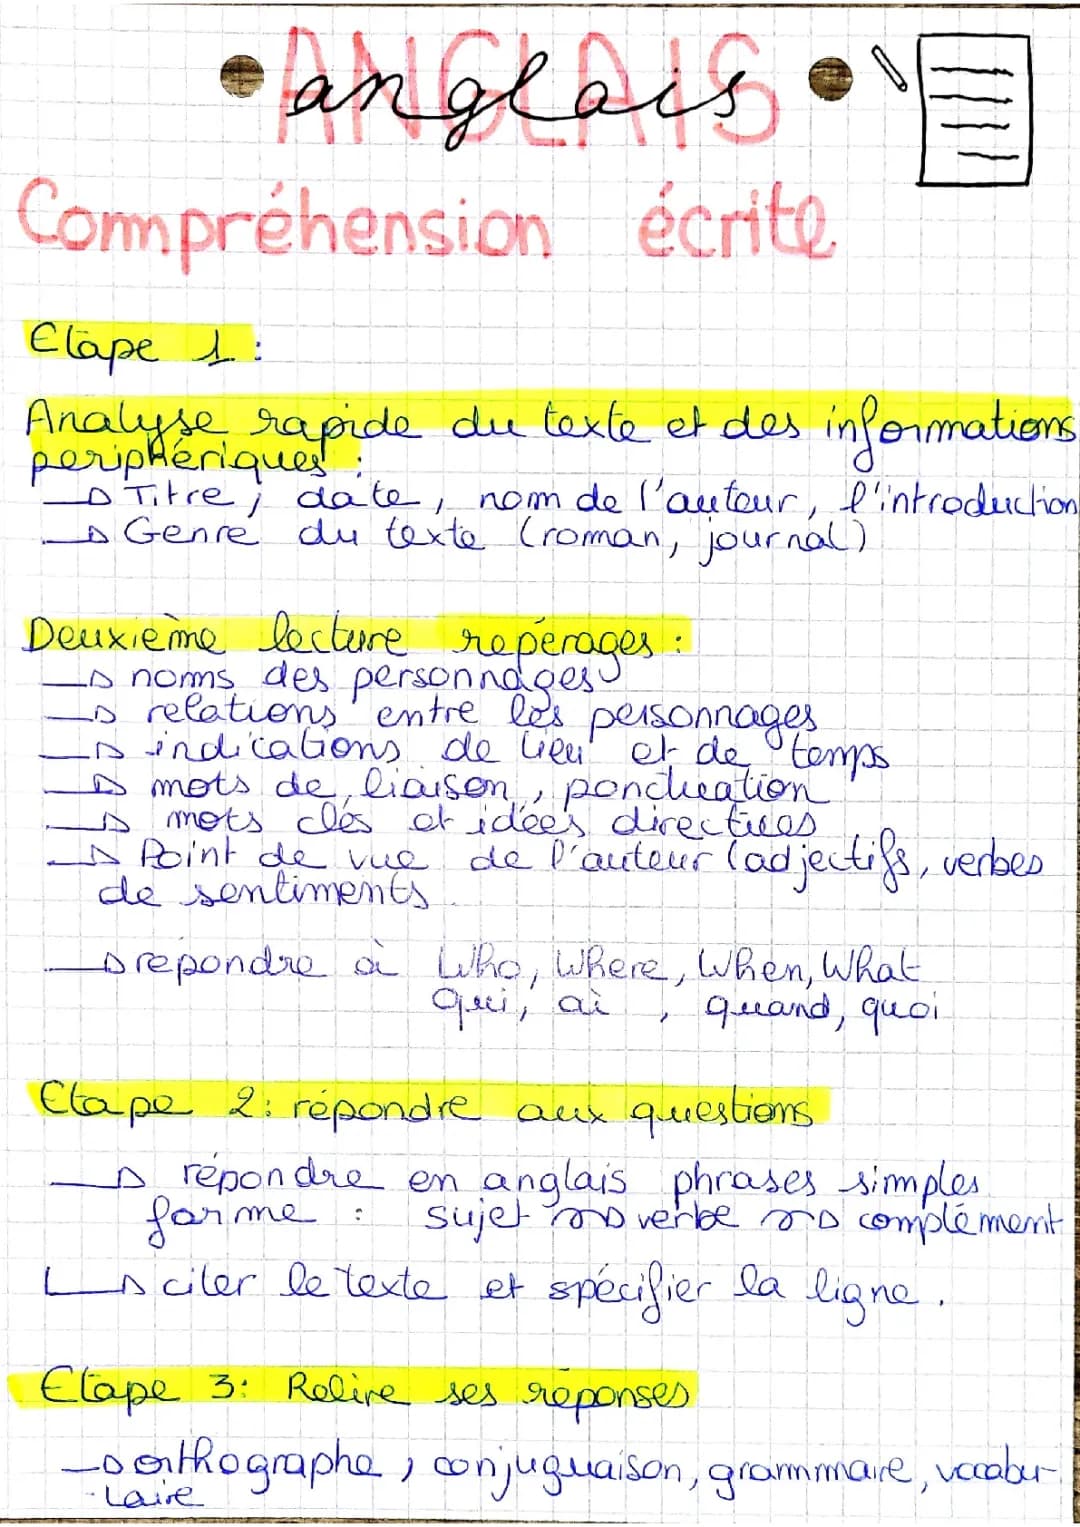 ANGLAIS
anglais
Compréhension écrite
Etape 1 :
Analyse rapide du texte et des informations
periphériques :
→ Titre, date, nom de l'auteur, l'introduction
→ Genre du texte (roman, journal)
Deuxième lecture repérages :
→ noms des personnages
→ relations entre les personnages
→ indications de lieu et de temps
→ mots de liaison, ponctuation
→ mots clés et idées directives
→ Point de vue de l'auteur (adjectifs, verbes
de sentiments
→ repondre à Who, Where, When, What
qui, où, quand, quoi
Etape 2 : répondre aux questions
→ répondre en anglais phrases simples
forme : sujet → verbe → complément
→ citer le texte et spécifier la ligne.
Etape 3 : Relire ses réponses
→ orthographe, conjuguaison, grammaire, vocabu-
-laire